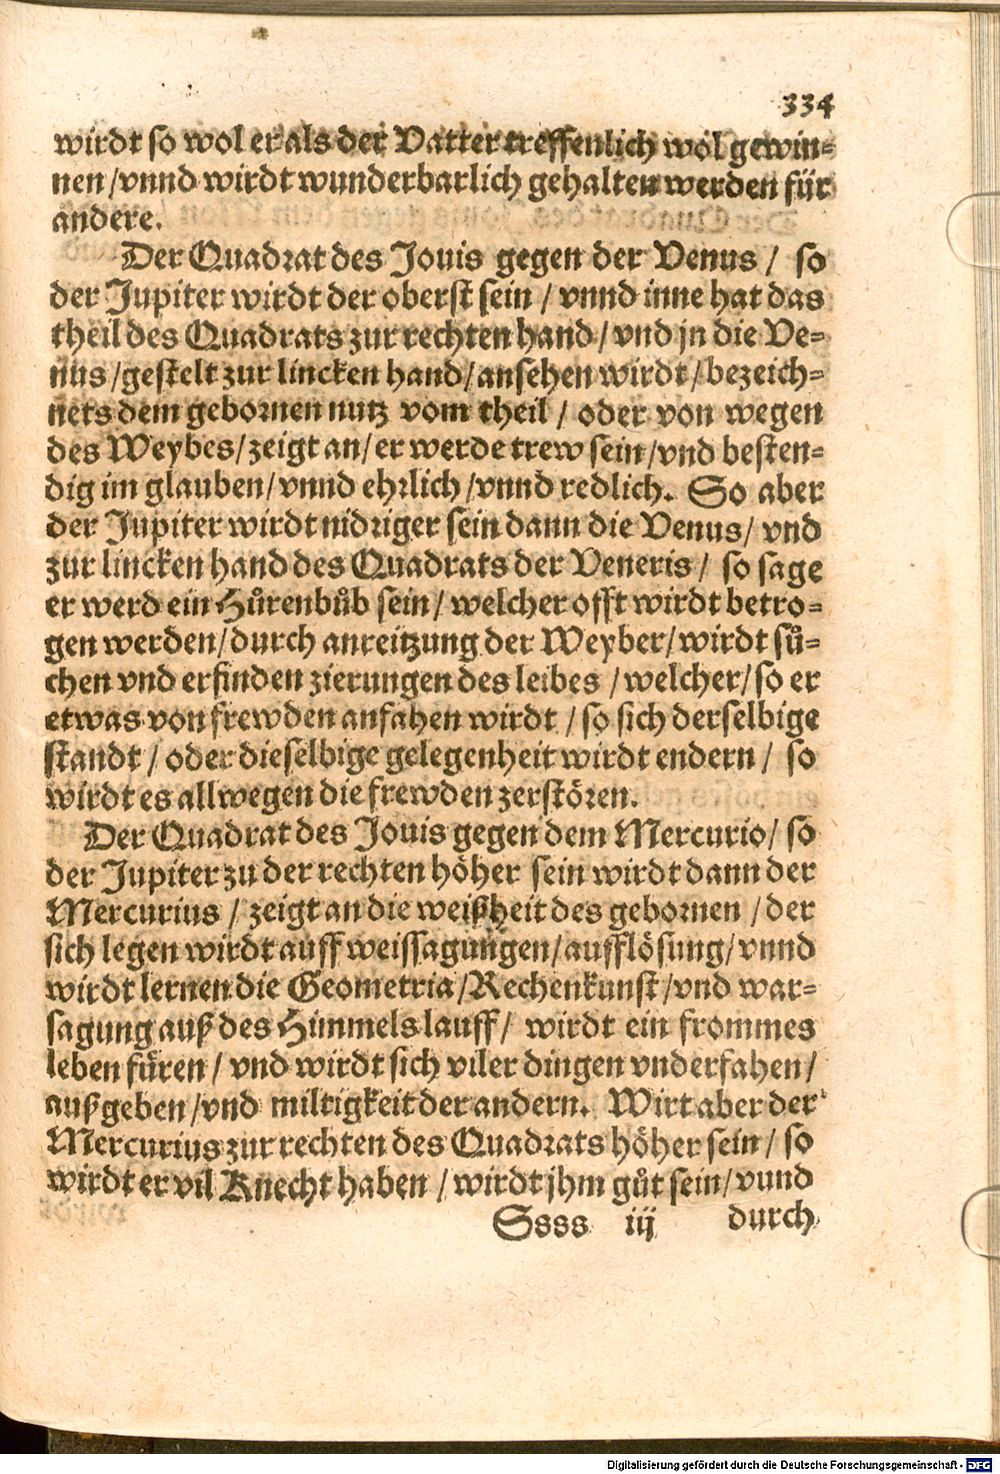 334
wirdt so wol er als der Vatter treffenlich wol gewin-
nen / vnnd wirdt wunderbarlich gehalten werden für
andere.
Der Quadrat des Jouis gegen der Venus / so
der Jupiter wirdt der oberst sein / vnnd inne hat das
theil des Quadrats zur rechten hand / vnd jn die Ve-
nus / gestelt zur lincken hand / ansehen wirdt / bezeich-
nets dem gebornen nutz vom theil / oder von wegen
des Weybes / zeigt an / er werde trew sein / vnd besten-
dig im glauben / vnnd ehrlich / vnnd redlich. So aber
der Jupiter wirdt nidriger sein dann die Venus / vnd
zur lincken hand des Quadrats der Veneris / so sage
er werd ein Hůrenbůb sein / welcher offt wirdt betro-
gen werden / durch anreitzung der Weyber / wirdt sů-
chen vnd erfinden zierungen des leibes / welcher / so er
etwas von frewden anfahen wirdt / so sich derselbige
standt / oder dieselbige gelegenheit wirdt endern / so
wirdt es allwegen die frewden zerstören.
Der Quadrat des Jouis gegen dem Mercurio / so
der Jupiter zu der rechten höher sein wirdt dann der
Mercurius / zeigt an die weißheit des gebornen / der
sich legen wirdt auff weissagungen / aufflösung / vnnd
wirdt lernen die Geometria / Rechenkunst / vnd war-
sagung auß des Himmels lauff / wirdt ein frommes
leben füren / vnd wirdt sich viler dingen vnderfahen /
außgeben / vnd miltigkeit der andern. Wirt aber der
Mercurius zur rechten des Quadrats höher sein / so
wirdt er vil Knecht haben / wirdt jhm gůt sein / vnnd
Ssss iij durch
Digitalisierung gefördert durch die Deutsche Forschungsgemeinschaft - DFG